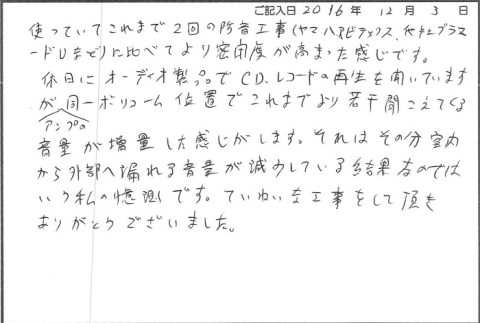 ご記入日 2016年 12月 3日
使っていてこれまで2回の防音工事(ヤマハアビテックス、
ードUまど)に比べてより密閉度が高まった感じです。
休日にオーディオ製品でCD、レコードの再生を聞いています
が同一ボリューム位置でこれまでより若干聞こえてくる
アンプの
音量が増量した感じがします。それはその分室内
から外部へ漏れる音量が減少している結果なのでは
いう私の憶測です。ていねいな工事をして頂き
ありがとうございました。